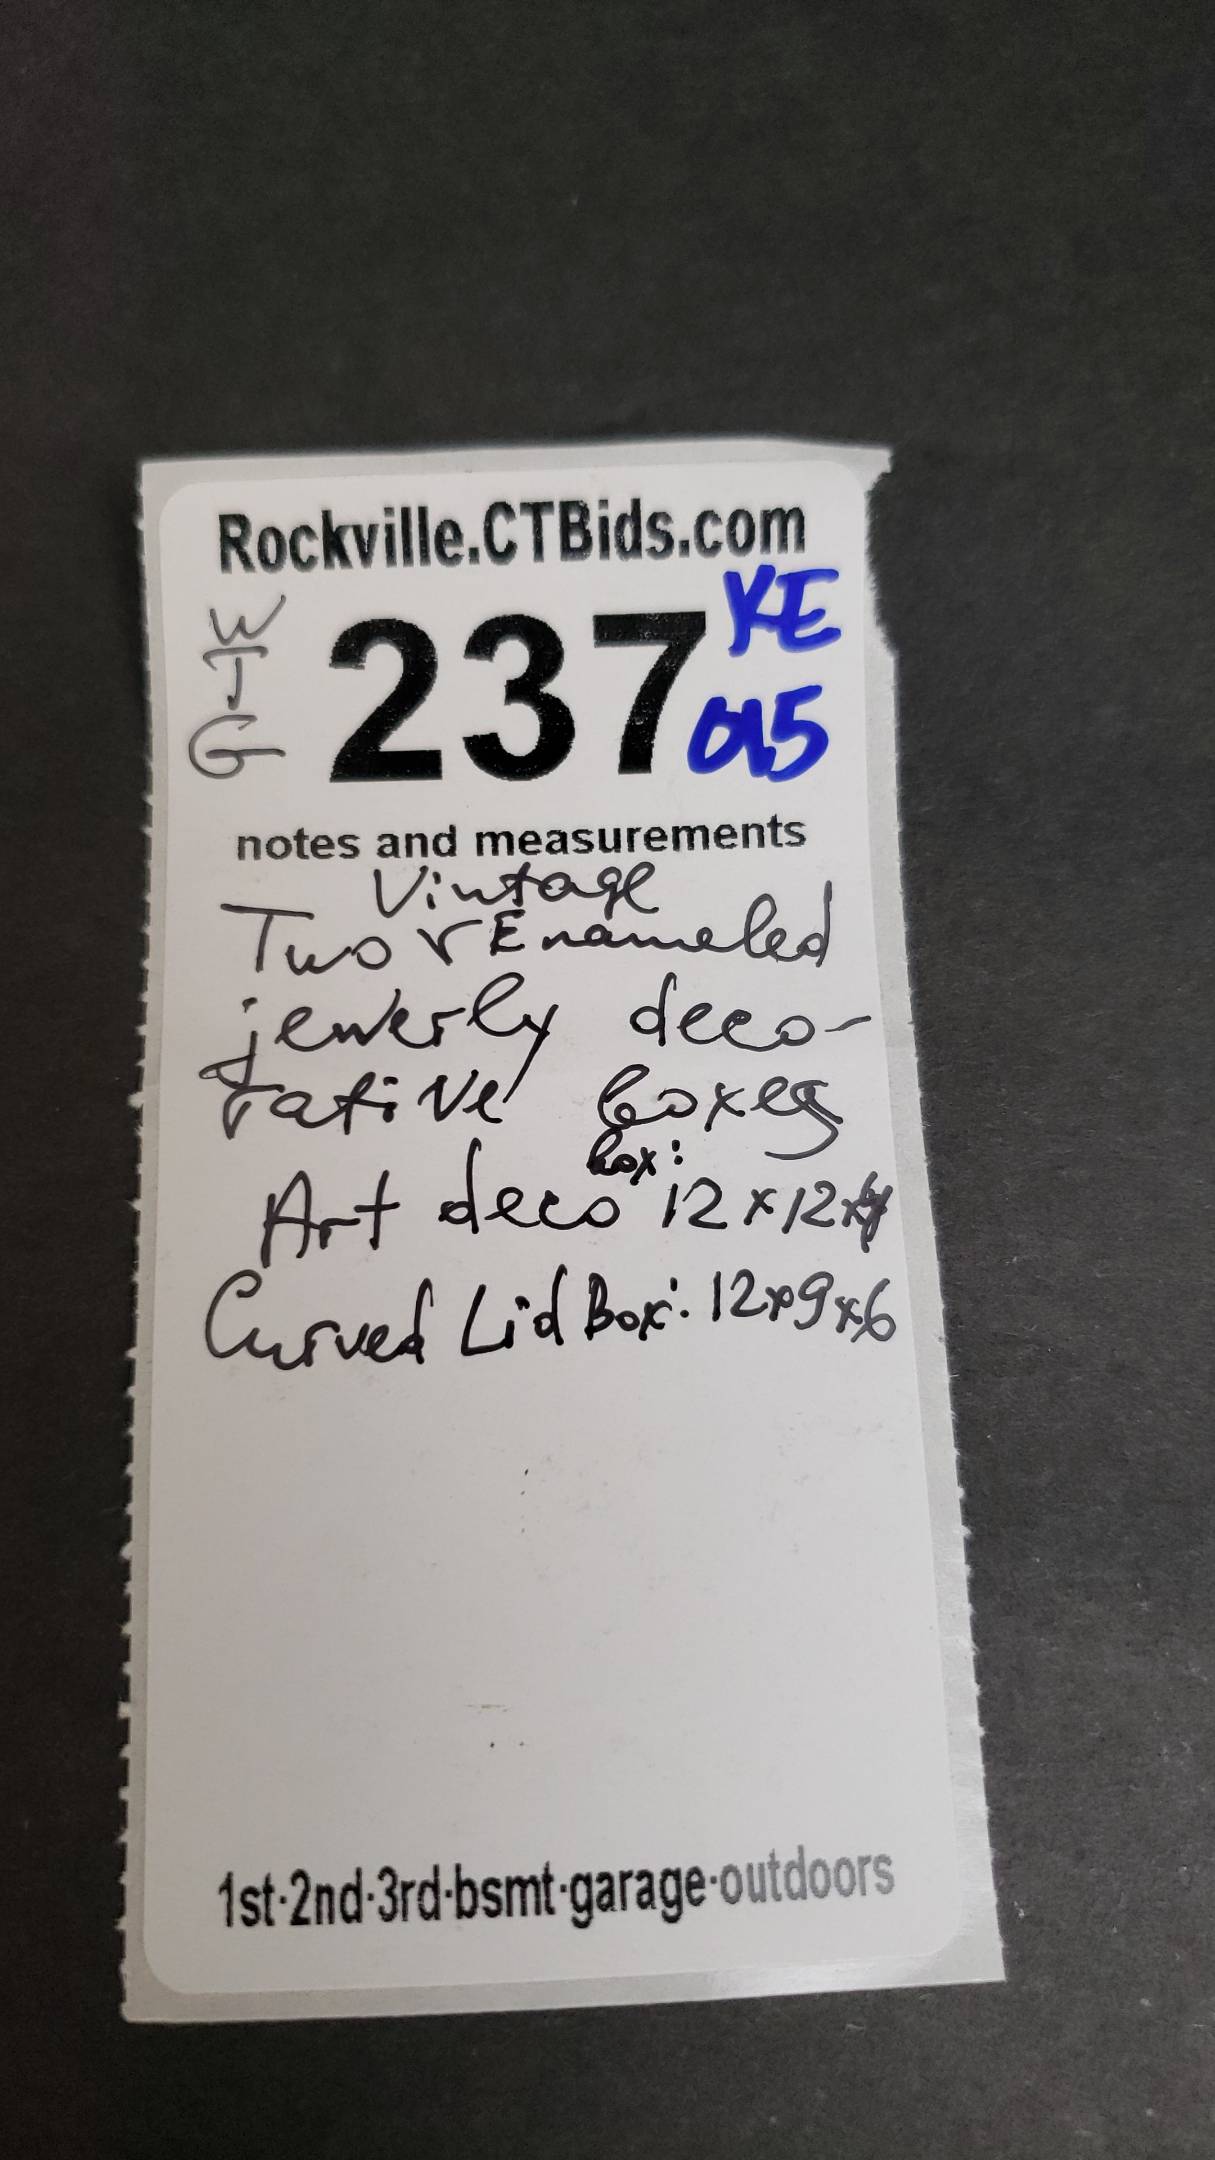 Rockville.CTBids.com
W
J
G
237
KE
015
notes and measurements
Vintage
Two Enameled
jewerly deco-
rative boxes
box:
Art deco 12 x 12 x
Curved Lid Box: 12x9x6
1st·2nd·3rd·bsmt·garage·outdoors